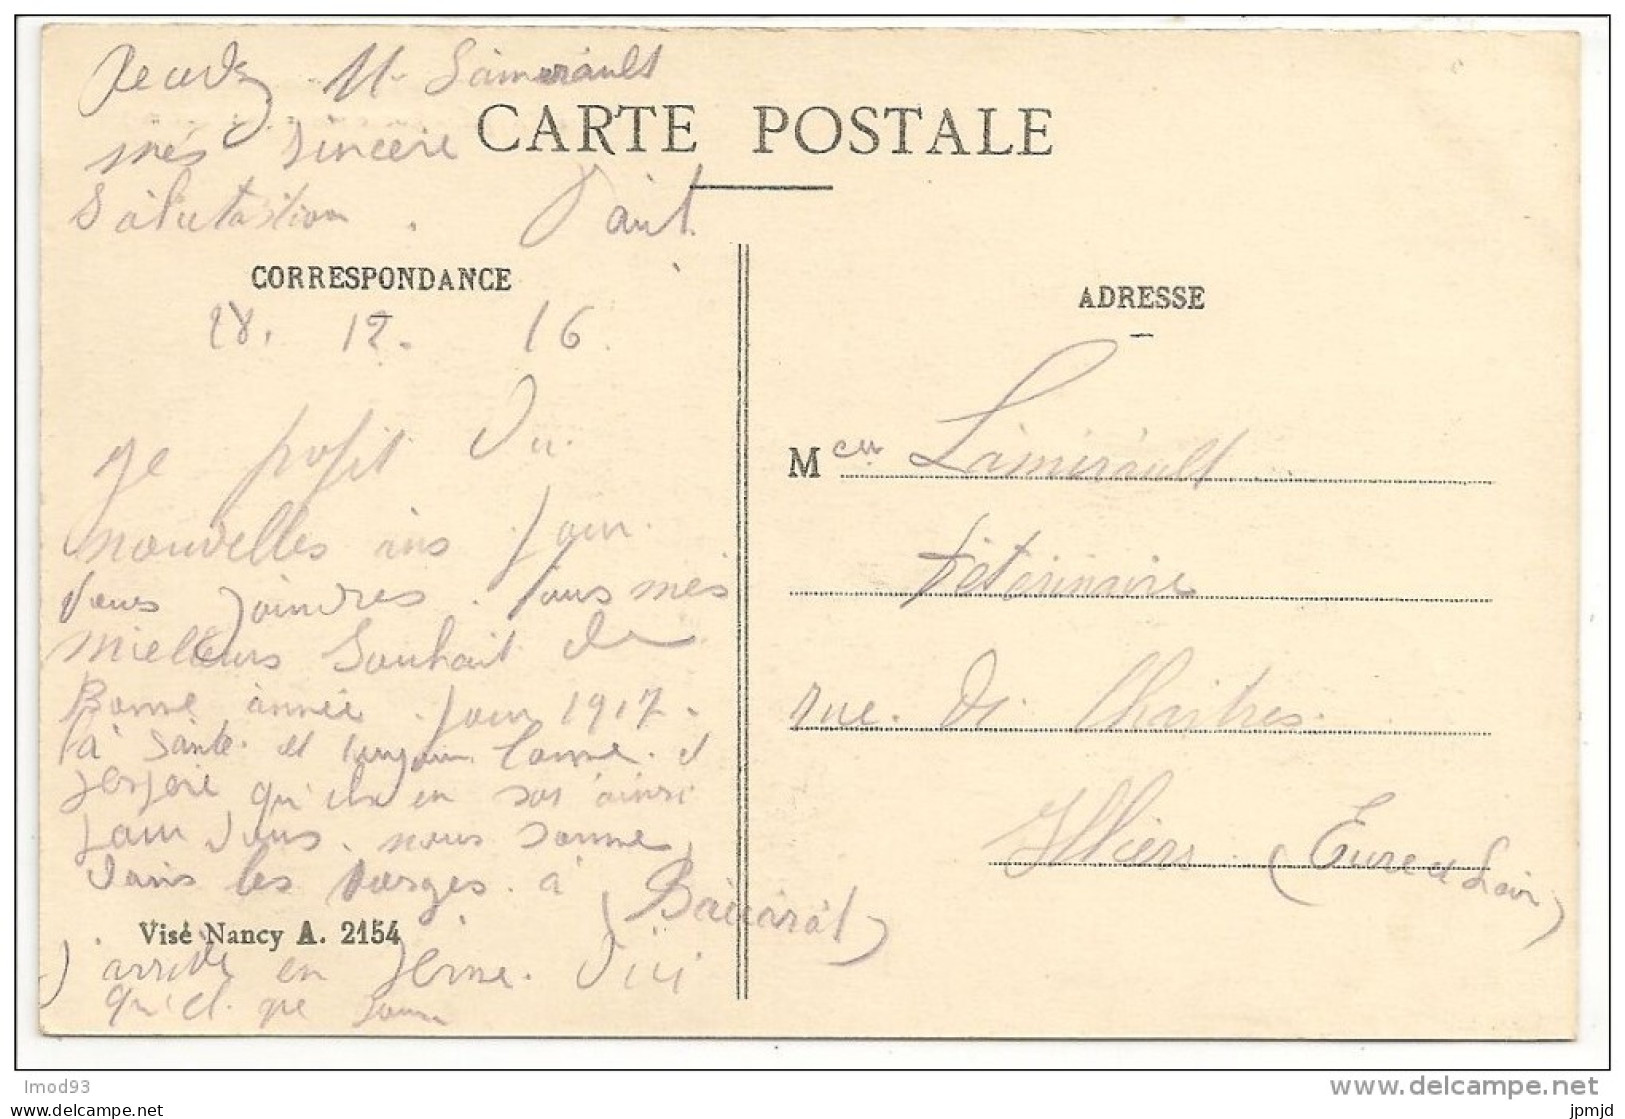 Recevez M. Lamirault
mes sincère
Salutastion.
CARTE POSTALE
CORRESPONDANCE
28. 12. 16
Je profit du
nouvelles ans pour
vous joindres. tous mes
mielleurs Souhait de
Bonne année. pour 1917.
la santé. et bonne. et
jespère qu'ils en soi ainsi
pour vous. nous somme
dans les Vosges. à (Baccarat)
Visé Nancy A. 2154
J arrive en perme. d'ici
quel que jour
ADRESSE
Meur Lamirault
Veterinaire
rue. de Chartres.
Illiers. (Eure et Loir)
lmod93
www.delcampe.net
jpmjd